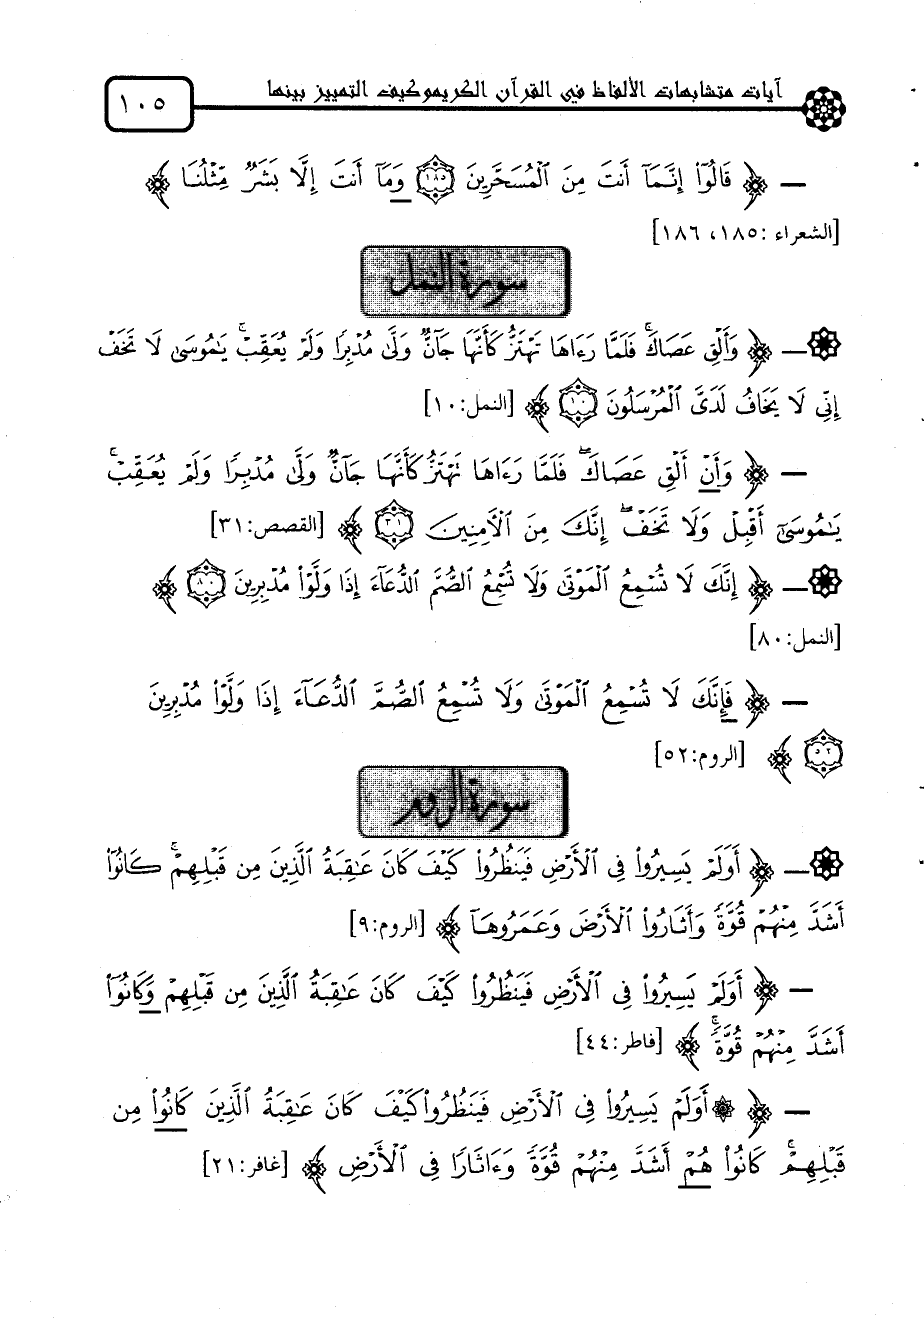 آيات متشابهات الألفاظ في القرآن الكريم وكيف التمييز بينها ١٠٥
— ﴿ قَالُوٓا۟ إِنَّمَآ أَنتَ مِنَ ٱلْمُسَحَّرِينَ ١٨٥ وَمَآ أَنتَ إِلَّا بَشَرٌ مِّثْلُنَا ﴾
[الشعراء :١٨٥، ١٨٦]
سورة النمل
— ﴿ وَأَلْقِ عَصَاكَ ۚ فَلَمَّا رَءَاهَا تَهْتَزُّ كَأَنَّهَا جَآنٌّ وَلَّىٰ مُدْبِرًا وَلَمْ يُعَقِّبْ ۚ يَـٰمُوسَىٰ لَا تَخَفْ
إِنِّى لَا يَخَافُ لَدَىَّ ٱلْمُرْسَلُونَ ١٠ ﴾ [النمل:١٠]
— ﴿ وَأَنْ أَلْقِ عَصَاكَ ۖ فَلَمَّا رَءَاهَا تَهْتَزُّ كَأَنَّهَا جَآنٌّ وَلَّىٰ مُدْبِرًا وَلَمْ يُعَقِّبْ ۚ
يَـٰمُوسَىٰٓ أَقْبِلْ وَلَا تَخَفْ ۖ إِنَّكَ مِنَ ٱلْـَٔامِنِينَ ٣١ ﴾ [القصص:٣١]
— ﴿ إِنَّكَ لَا تُسْمِعُ ٱلْمَوْتَىٰ وَلَا تُسْمِعُ ٱلصُّمَّ ٱلدُّعَآءَ إِذَا وَلَّوْا۟ مُدْبِرِينَ ٨٠ ﴾
[النمل:٨٠]
— ﴿ فَإِنَّكَ لَا تُسْمِعُ ٱلْمَوْتَىٰ وَلَا تُسْمِعُ ٱلصُّمَّ ٱلدُّعَآءَ إِذَا وَلَّوْا۟ مُدْبِرِينَ
٥٢ ﴾ [الروم:٥٢]
سورة الروم
— ﴿ أَوَلَمْ يَسِيرُوا۟ فِى ٱلْأَرْضِ فَيَنظُرُوا۟ كَيْفَ كَانَ عَـٰقِبَةُ ٱلَّذِينَ مِن قَبْلِهِمْ ۚ كَانُوٓا۟
أَشَدَّ مِنْهُمْ قُوَّةً وَأَثَارُوا۟ ٱلْأَرْضَ وَعَمَرُوهَآ ﴾ [الروم:٩]
— ﴿ أَوَلَمْ يَسِيرُوا۟ فِى ٱلْأَرْضِ فَيَنظُرُوا۟ كَيْفَ كَانَ عَـٰقِبَةُ ٱلَّذِينَ مِن قَبْلِهِمْ وَكَانُوٓا۟
أَشَدَّ مِنْهُمْ قُوَّةً ۚ ﴾ [فاطر:٤٤]
— ﴿ ۞ أَوَلَمْ يَسِيرُوا۟ فِى ٱلْأَرْضِ فَيَنظُرُوا۟ كَيْفَ كَانَ عَـٰقِبَةُ ٱلَّذِينَ كَانُوا۟ مِن
قَبْلِهِمْ ۚ كَانُوا۟ هُمْ أَشَدَّ مِنْهُمْ قُوَّةً وَءَاثَارًا فِى ٱلْأَرْضِ ﴾ [غافر:٢١]